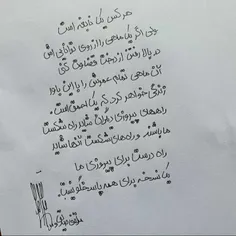 هر کس یک نابغه است
ولی اگر یک ماهی را از روی توانایی اش
در بالا رفتن از درخت قضاوت کنی
آن ماهی تمام عمرش را با این باور
زندگی خواهد کرد که یک احمق است.
راههای پیروزی دیگران شاید راه شکست
ما باشند و راه های شکست آنها شاید
راه درست برای پیروزی ما
یک نسخه برای همه پاسخگو نیست.